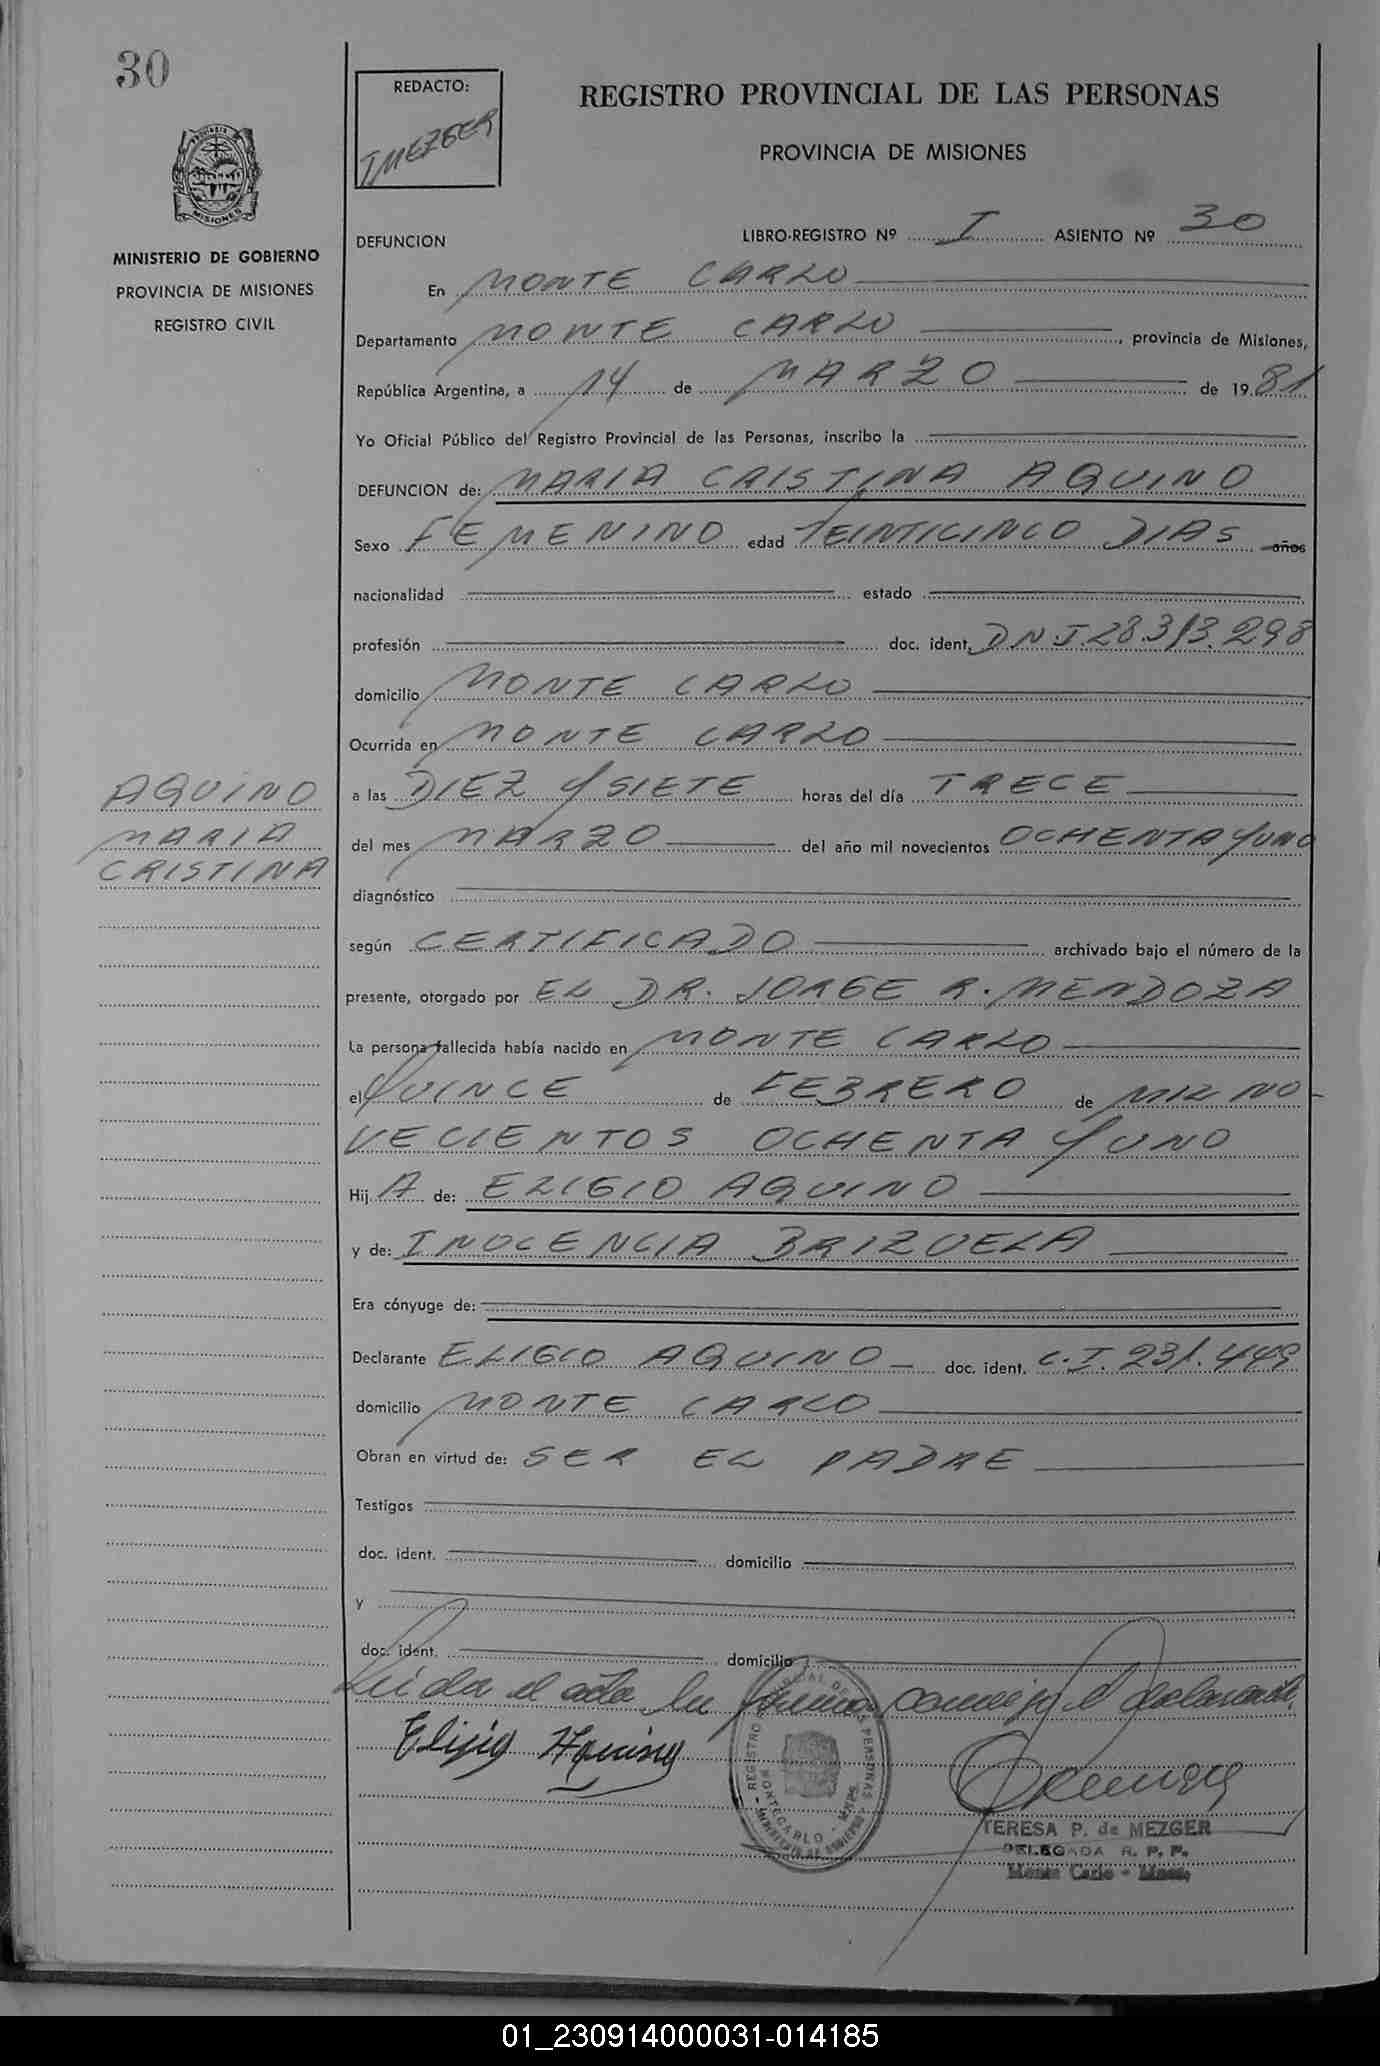 30
REDACTO:
TMEZGER
REGISTRO PROVINCIAL DE LAS PERSONAS
PROVINCIA DE MISIONES
PROVINCIA
MISIONES
MINISTERIO DE GOBIERNO
PROVINCIA DE MISIONES
REGISTRO CIVIL
DEFUNCION LIBRO-REGISTRO Nº I ASIENTO Nº 30
En MONTE CARLO
Departamento MONTE CARLO, provincia de Misiones,
República Argentina, a 14 de MARZO de 1981
Yo Oficial Público del Registro Provincial de las Personas, inscribo la
DEFUNCION de: MARIA CRISTINA AQUINO
Sexo FEMENINO edad VEINTICINCO DIAS años
nacionalidad estado
profesión doc. ident. DNI.28.313.298
domicilio MONTE CARLO
Ocurrida en MONTE CARLO
AQUINO
MARIA
CRISTINA
a las DIEZ Y SIETE horas del día TRECE
del mes MARZO del año mil novecientos OCHENTA Y UNO
diagnóstico
según CERTIFICADO archivado bajo el número de la
presente, otorgado por EL DR. JORGE R. MENDOZA
La persona fallecida había nacido en MONTE CARLO
el QUINCE de FEBRERO de MIL NO-
VECIENTOS OCHENTA Y UNO
Hij A de: ELIGIO AQUINO
y de: INOCENCIA BRIZUELA
Era cónyuge de:
Declarante ELIGIO AQUINO doc. ident. C.I. 231.449
domicilio MONTE CARLO
Obran en virtud de: SER EL PADRE
Testigos
doc. ident. domicilio
y
doc. ident. domicilio
Leida el acta la firma conmigo el declarante
Eligio Aquino
REGISTRO PROVINCIAL DE LAS PERSONAS
MONTECARLO - MNES.
MINISTERIO DE GOBIERNO
TERESA P. de MEZGER
DELEGADA R. P. P.
Monte Carlo - Mnes.
01_230914000031-014185